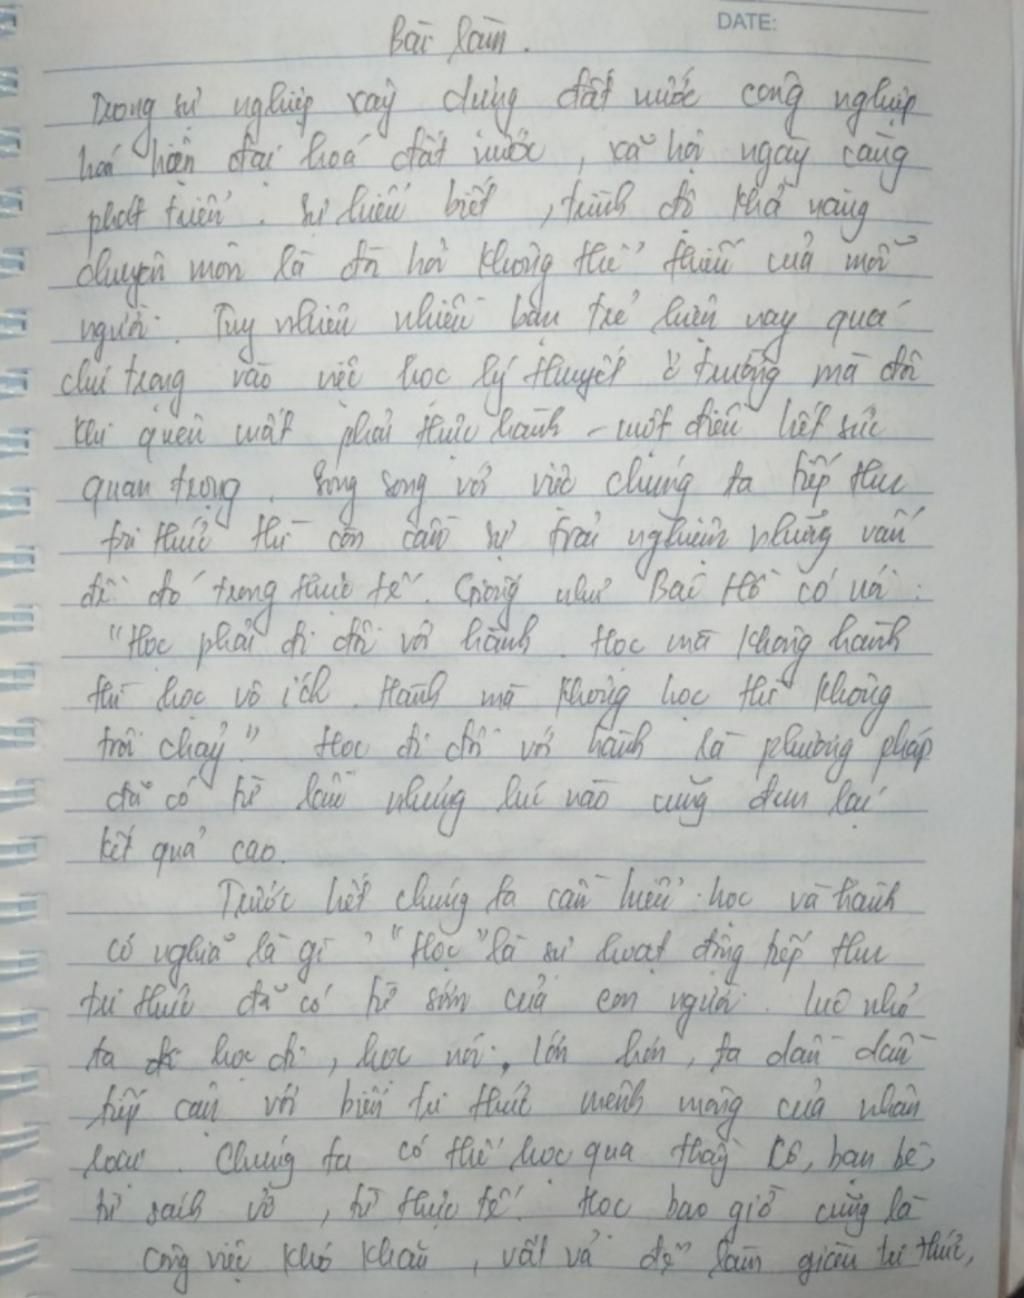 Bài làm.
DATE:
Trong sự nghiệp xây dựng đất nước công nghiệp
hoá hiện đại hoá đất nước, xã hội ngày càng
phát triển. Sự hiểu biết, trình độ khả năng
chuyên môn là đòi hỏi không thể thiếu của mỗi
người. Tuy nhiên nhiều bạn trẻ hiện nay quá
chú trọng vào việc học lý thuyết ở trường mà đôi
khi quên mất phải thực hành - một điều hết sức
quan trọng. Song song với việc chúng ta tiếp thu
tri thức thì còn cần sự trải nghiệm những vấn
đề đó trong thực tế. Giống như Bác Hồ có nói:
"Học phải đi đôi với hành. Học mà không hành
thì học vô ích. Hành mà không học thì không
trôi chảy" Học đi đôi với hành là phương pháp
đã có từ lâu nhưng lúc nào cũng đem lại
kết quả cao.
Trước hết chúng ta cần hiểu học và hành
có nghĩa là gì? "Học" là sự hoạt động tiếp thu
tri thức đã có từ sớm của con người. Lúc nhỏ
ta học đi, học nói, lớn hơn, ta dần dần
tiếp cận với biển tri thức mênh mông của nhân
loại. Chúng ta có thể học qua thầy cô, bạn bè,
từ sách vở, từ thực tế. Học bao giờ cũng là
công việc khó khăn, vất vả để làm giàu tri thức,